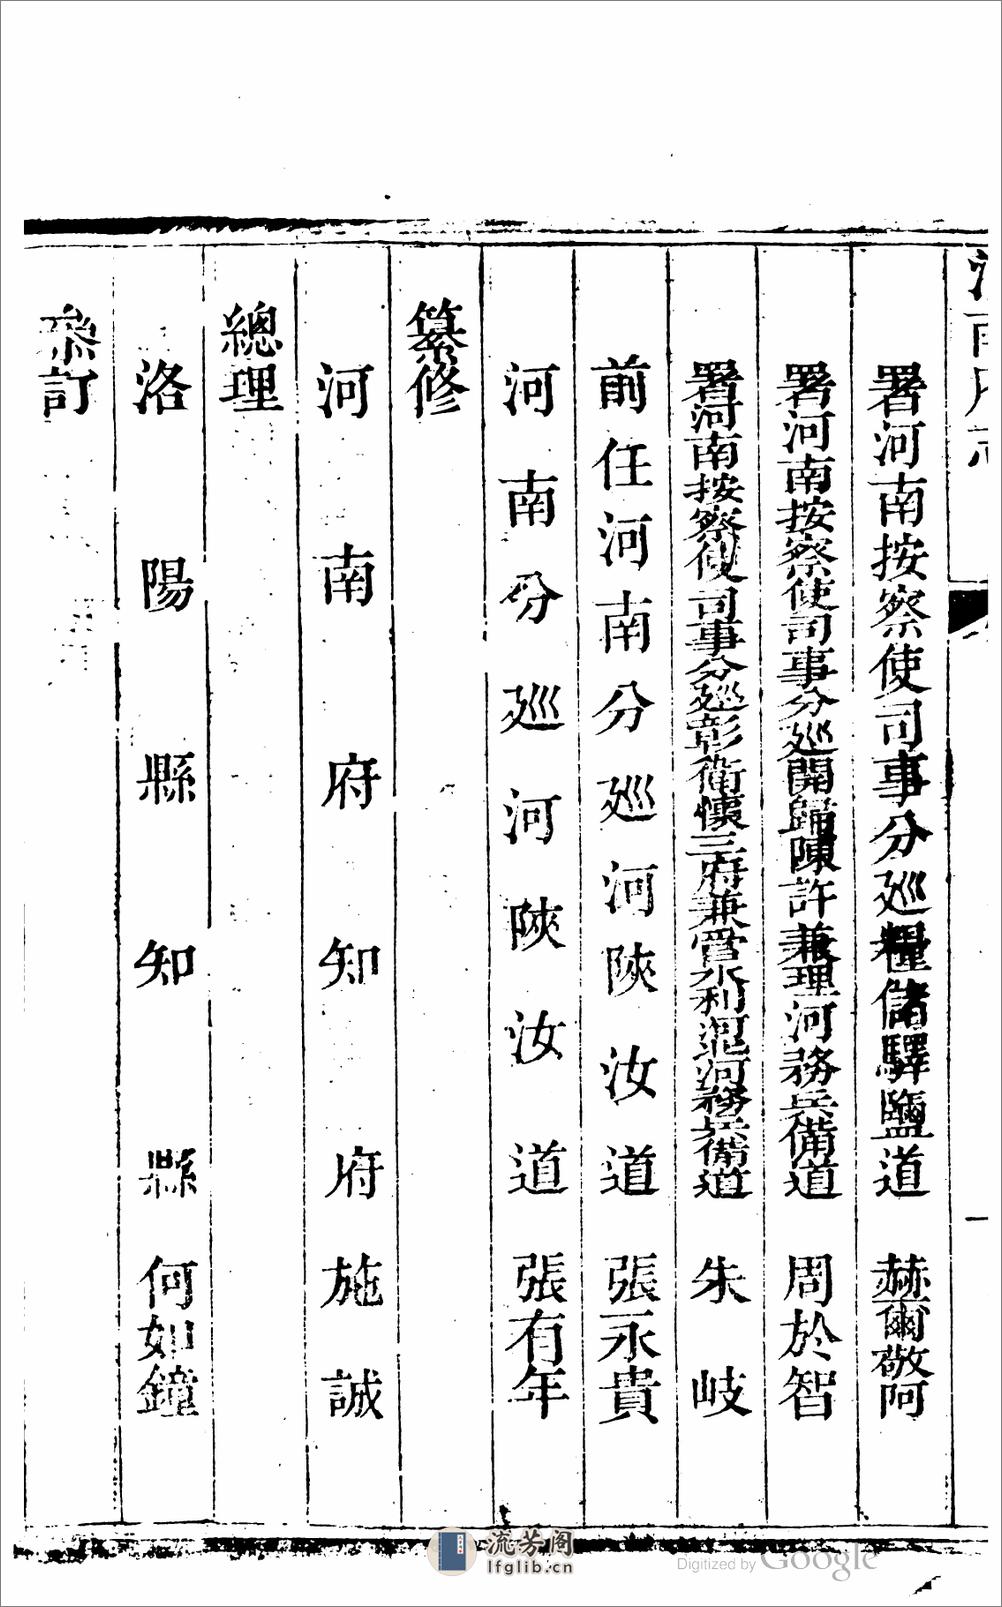 河南府志
一
署河南按察使司事分廵糧儲驛鹽道赫爾敬阿
署河南按察使司事分廵開歸陳許兼理河務兵備道周於智
署河南按察使司事分廵彰衛懷三府兼管水利河務兵備道朱岐
前任河南分廵河陝汝道張永貴
河南分廵河陝汝道張有年
纂修
河南府知府施誠
總理
洛陽縣知縣何如鐘
叅訂
流芳阁
lfglib.cn
Digitized by Google